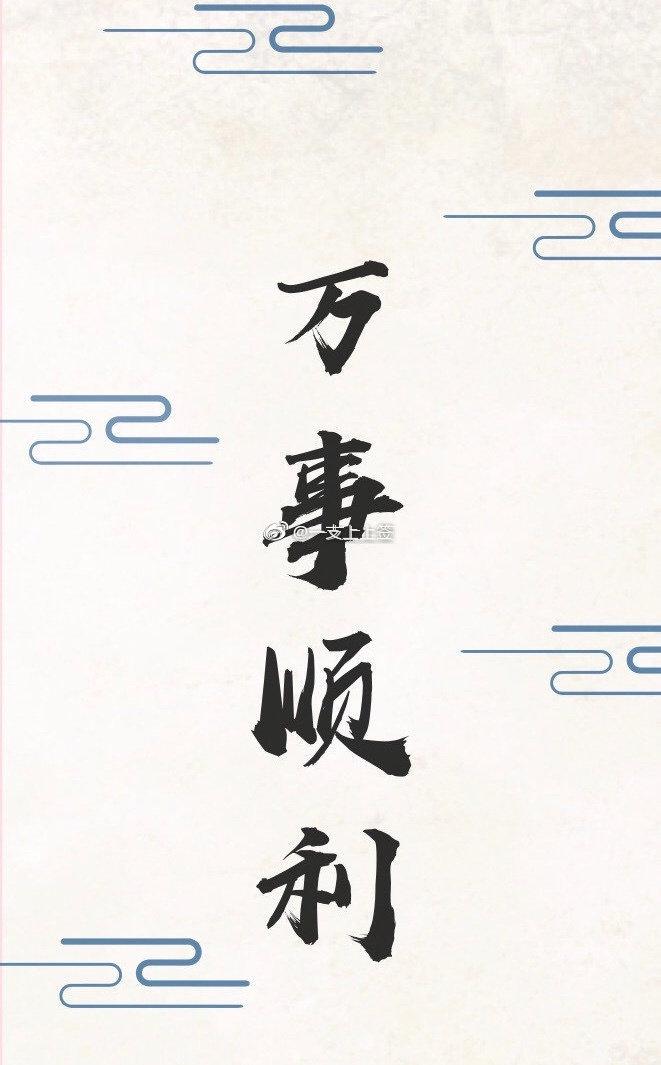 万事顺利
@一支上上签